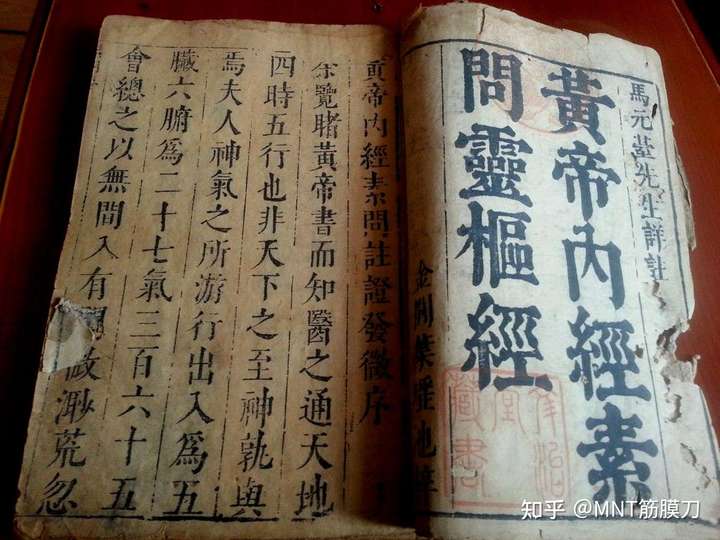 馬元臺先生詳註
黃帝內經素
問靈樞經
金閶葉瑤池梓
藏書
黃帝內經素問註證發微序
余覽睹黃帝書而知醫之通天地
四時五行也非天下之至神孰與
焉夫人神氣之所游行出入爲五
臟六腑爲二十七氣三百六十五
會總之以無間入有間微渺荒忽
知乎 @MNT筋膜刀